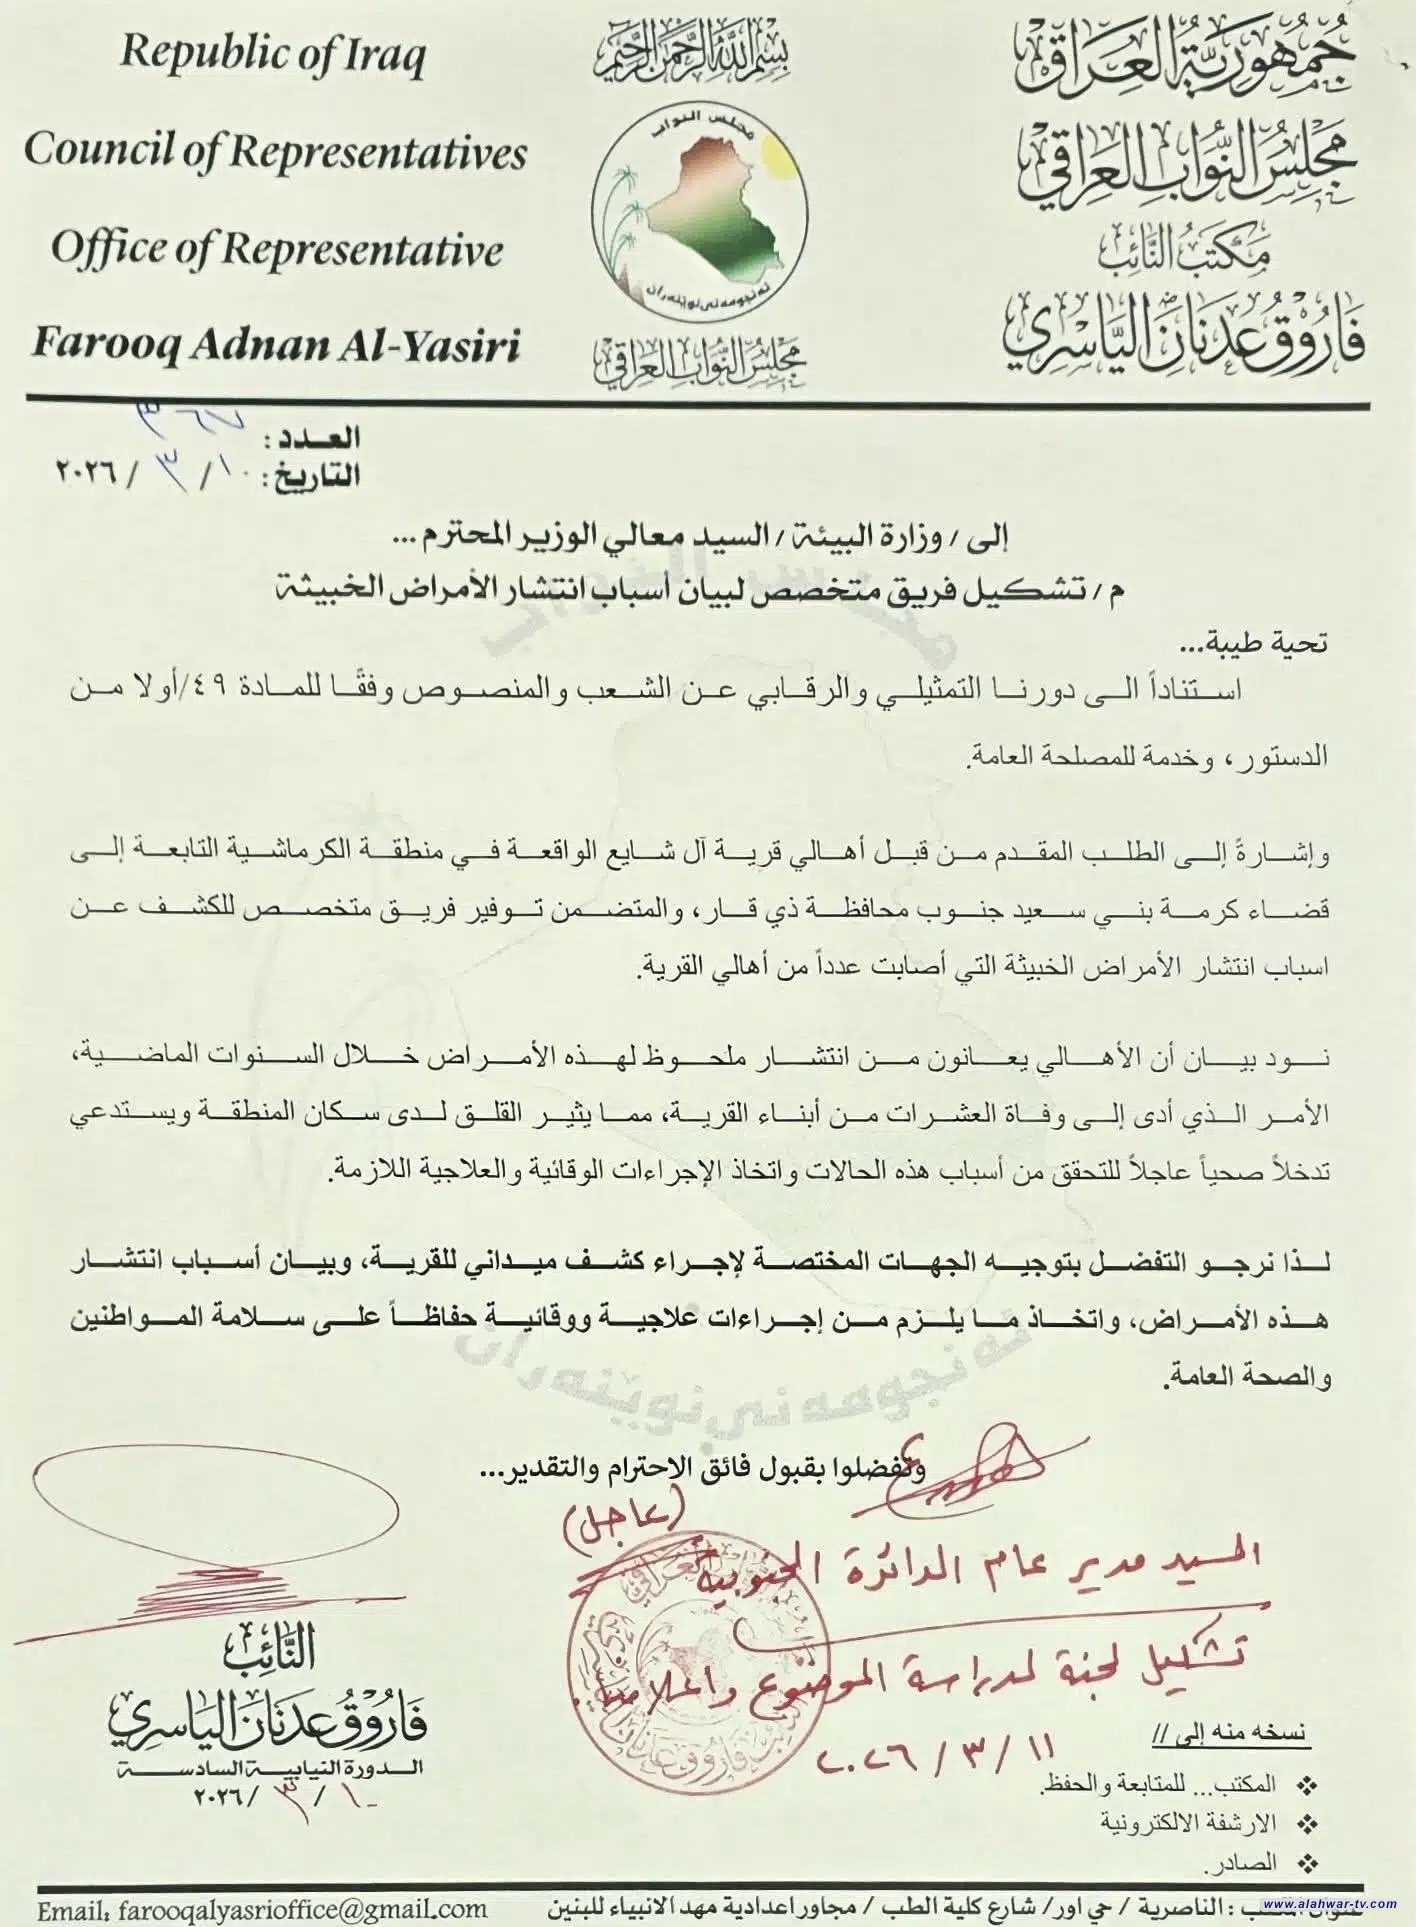 Republic of Iraq
Council of Representatives
Office of Representative
Farooq Adnan Al-Yasiri
بسم الله الرحمن الرحيم
مجلس النواب
ئەنجومەنی نوێنەران
مجلس النواب العراقي
جمهورية العراق
مجلس النواب العراقي
مكتب النائب
فاروق عدنان الياسري
العـدد : ٣٦٧
التاريخ : ١٠ / ٣ / ٢٠٢٦
إلى / وزارة البيئة / السيد معالي الوزير المحترم ...
م / تشكيل فريق متخصص لبيان أسباب انتشار الأمراض الخبيثة
تحية طيبة...
استناداً الى دورنا التمثيلي والرقابي عن الشعب والمنصوص وفقًا للمادة ٤٩/أولا من
الدستور ، وخدمة للمصلحة العامة.
وإشارةً إلى الطلب المقدم من قبل أهالي قرية آل شايع الواقعة في منطقة الكرماشية التابعة إلى
قضاء كرمة بني سعيد جنوب محافظة ذي قار، والمتضمن توفير فريق متخصص للكشف عن
اسباب انتشار الأمراض الخبيثة التي أصابت عدداً من أهالي القرية.
نود بيان أن الأهالي يعانون من انتشار ملحوظ لهذه الأمراض خلال السنوات الماضية،
الأمر الذي أدى إلى وفاة العشرات من أبناء القرية، مما يثير القلق لدى سكان المنطقة ويستدعي
تدخلاً صحياً عاجلاً للتحقق من أسباب هذه الحالات واتخاذ الإجراءات الوقائية والعلاجية اللازمة.
لذا نرجو التفضل بتوجيه الجهات المختصة لإجراء كشف ميداني للقرية، وبيان أسباب انتشار
هذه الأمراض، واتخاذ ما يلزم من إجراءات علاجية ووقائية حفاظاً على سلامة المواطنين
والصحة العامة.
وتفضلوا بقبول فائق الاحترام والتقدير...
(عاجل)
السيد مدير عام الدائرة الجنوبية
تشكيل لجنة لدراسة الموضوع واعلامنا.
١١ / ٣ / ٢٠٢٦
النائب
فاروق عدنان الياسري
الدورة النيابية السادسة
١٠ / ٣ / ٢٠٢٦
نسخه منه إلى //
❖ المكتب... للمتابعة والحفظ.
❖ الارشفة الالكترونية
❖ الصادر.
Email: farooqalyasrioffice@gmail.com
: الناصرية / حي اور/ شارع كلية الطب / مجاور اعدادية مهد الانبياء للبنين
www.alahwar-tv.com